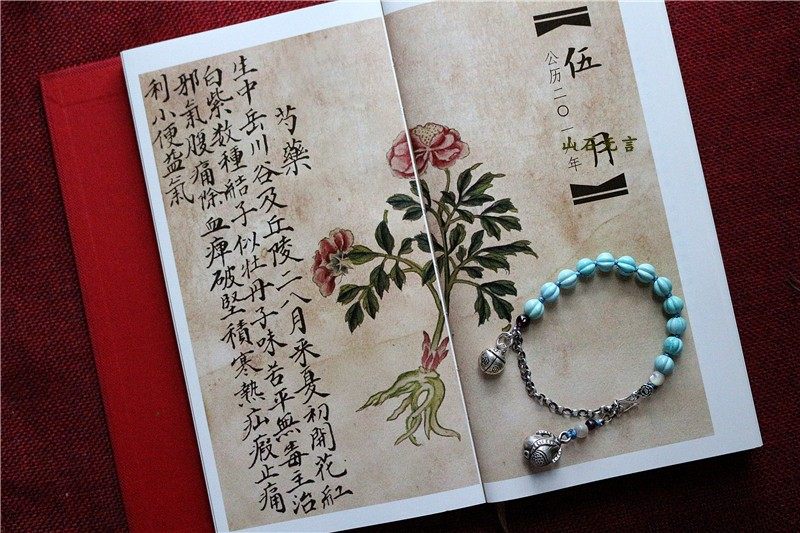 伍月
公历二〇一 年
山石无言
芍藥
生中岳川谷及丘陵二八月采夏初開花紅
白紫数種結子似牡丹子味苦平無毒主治
邪氣腹痛除血痺破堅積寒熱疝瘕止痛
利小便益氣